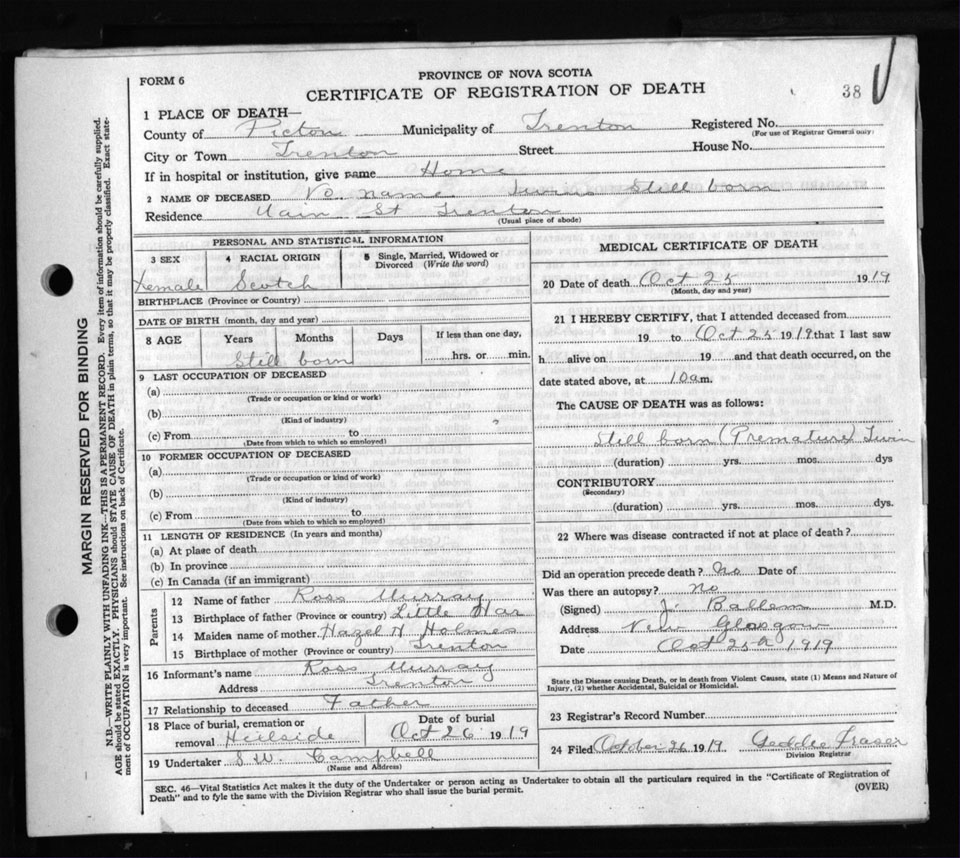 FORM 6
PROVINCE OF NOVA SCOTIA
CERTIFICATE OF REGISTRATION OF DEATH
38
1 PLACE OF DEATH—
County of Pictou Municipality of Trenton Registered No.
(For use of Registrar General only)
City or Town Trenton Street House No.
If in hospital or institution, give name Home
2 NAME OF DECEASED No name Twins Still born
Residence Main St Trenton
(Usual place of abode)
PERSONAL AND STATISTICAL INFORMATION
3 SEX 4 RACIAL ORIGIN 5 Single, Married, Widowed or Divorced (Write the word)
Female Scotch
BIRTHPLACE (Province or Country)
DATE OF BIRTH (month, day and year)
8 AGE Years Months Days If less than one day,
Still born hrs. or min.
9 LAST OCCUPATION OF DECEASED
(a)
(Trade or occupation or kind or work)
(b)
(Kind of industry)
(c) From to
(Date from which to which so employed)
10 FORMER OCCUPATION OF DECEASED
(a)
(Trade or occupation or kind of work)
(b)
(Kind of industry)
(c) From to
(Date from which to which so employed)
11 LENGTH OF RESIDENCE (In years and months)
(a) At place of death
(b) In province
(c) In Canada (if an immigrant)
Parents
12 Name of father Ross Murray
13 Birthplace of father (Province or country) Little Har
14 Maiden name of mother Hazel H Holmes
15 Birthplace of mother (Province or country) Trenton
16 Informant's name Ross Murray
Address Trenton
17 Relationship to deceased Father
18 Place of burial, cremation or Date of burial
removal Hillside Oct 26 1919
19 Undertaker S W. Campbell
(Name and Address)
MEDICAL CERTIFICATE OF DEATH
20 Date of death Oct 25 1919
(Month, day and year)
21 I HEREBY CERTIFY, that I attended deceased from
19 to Oct 25 1919 that I last saw
h alive on 19 and that death occurred, on the
date stated above, at 10 a m.
The CAUSE OF DEATH was as follows:
Still born (Premature) Twin
(duration) yrs. mos. dys
CONTRIBUTORY
(Secondary)
(duration) yrs. mos. dys.
22 Where was disease contracted if not at place of death?
Did an operation precede death? No Date of
Was there an autopsy? No
(Signed) J. Ballem M.D.
Address New Glasgow
Date Oct 25th 1919
State the Disease causing Death, or in death from Violent Causes, state (1) Means and Nature of
Injury, (2) whether Accidental, Suicidal or Homicidal.
23 Registrar's Record Number
24 Filed October 26 1919 Geddie Fraser
Division Registrar
SEC. 46—Vital Statistics Act makes it the duty of the Undertaker or person acting as Undertaker to obtain all the particulars required in the "Certificate of Registration of
Death" and to fyle the same with the Division Registrar who shall issue the burial permit.
(OVER)
MARGIN RESERVED FOR BINDING
N.B.—WRITE PLAINLY WITH UNFADING INK—THIS IS A PERMANENT RECORD. Every item of information should be carefully supplied.
AGE should be stated EXACTLY. PHYSICIANS should STATE CAUSE OF DEATH in plain terms, so that it may be properly classified. Exact state-
ment of OCCUPATION is very important. See instructions on back of Certificate.